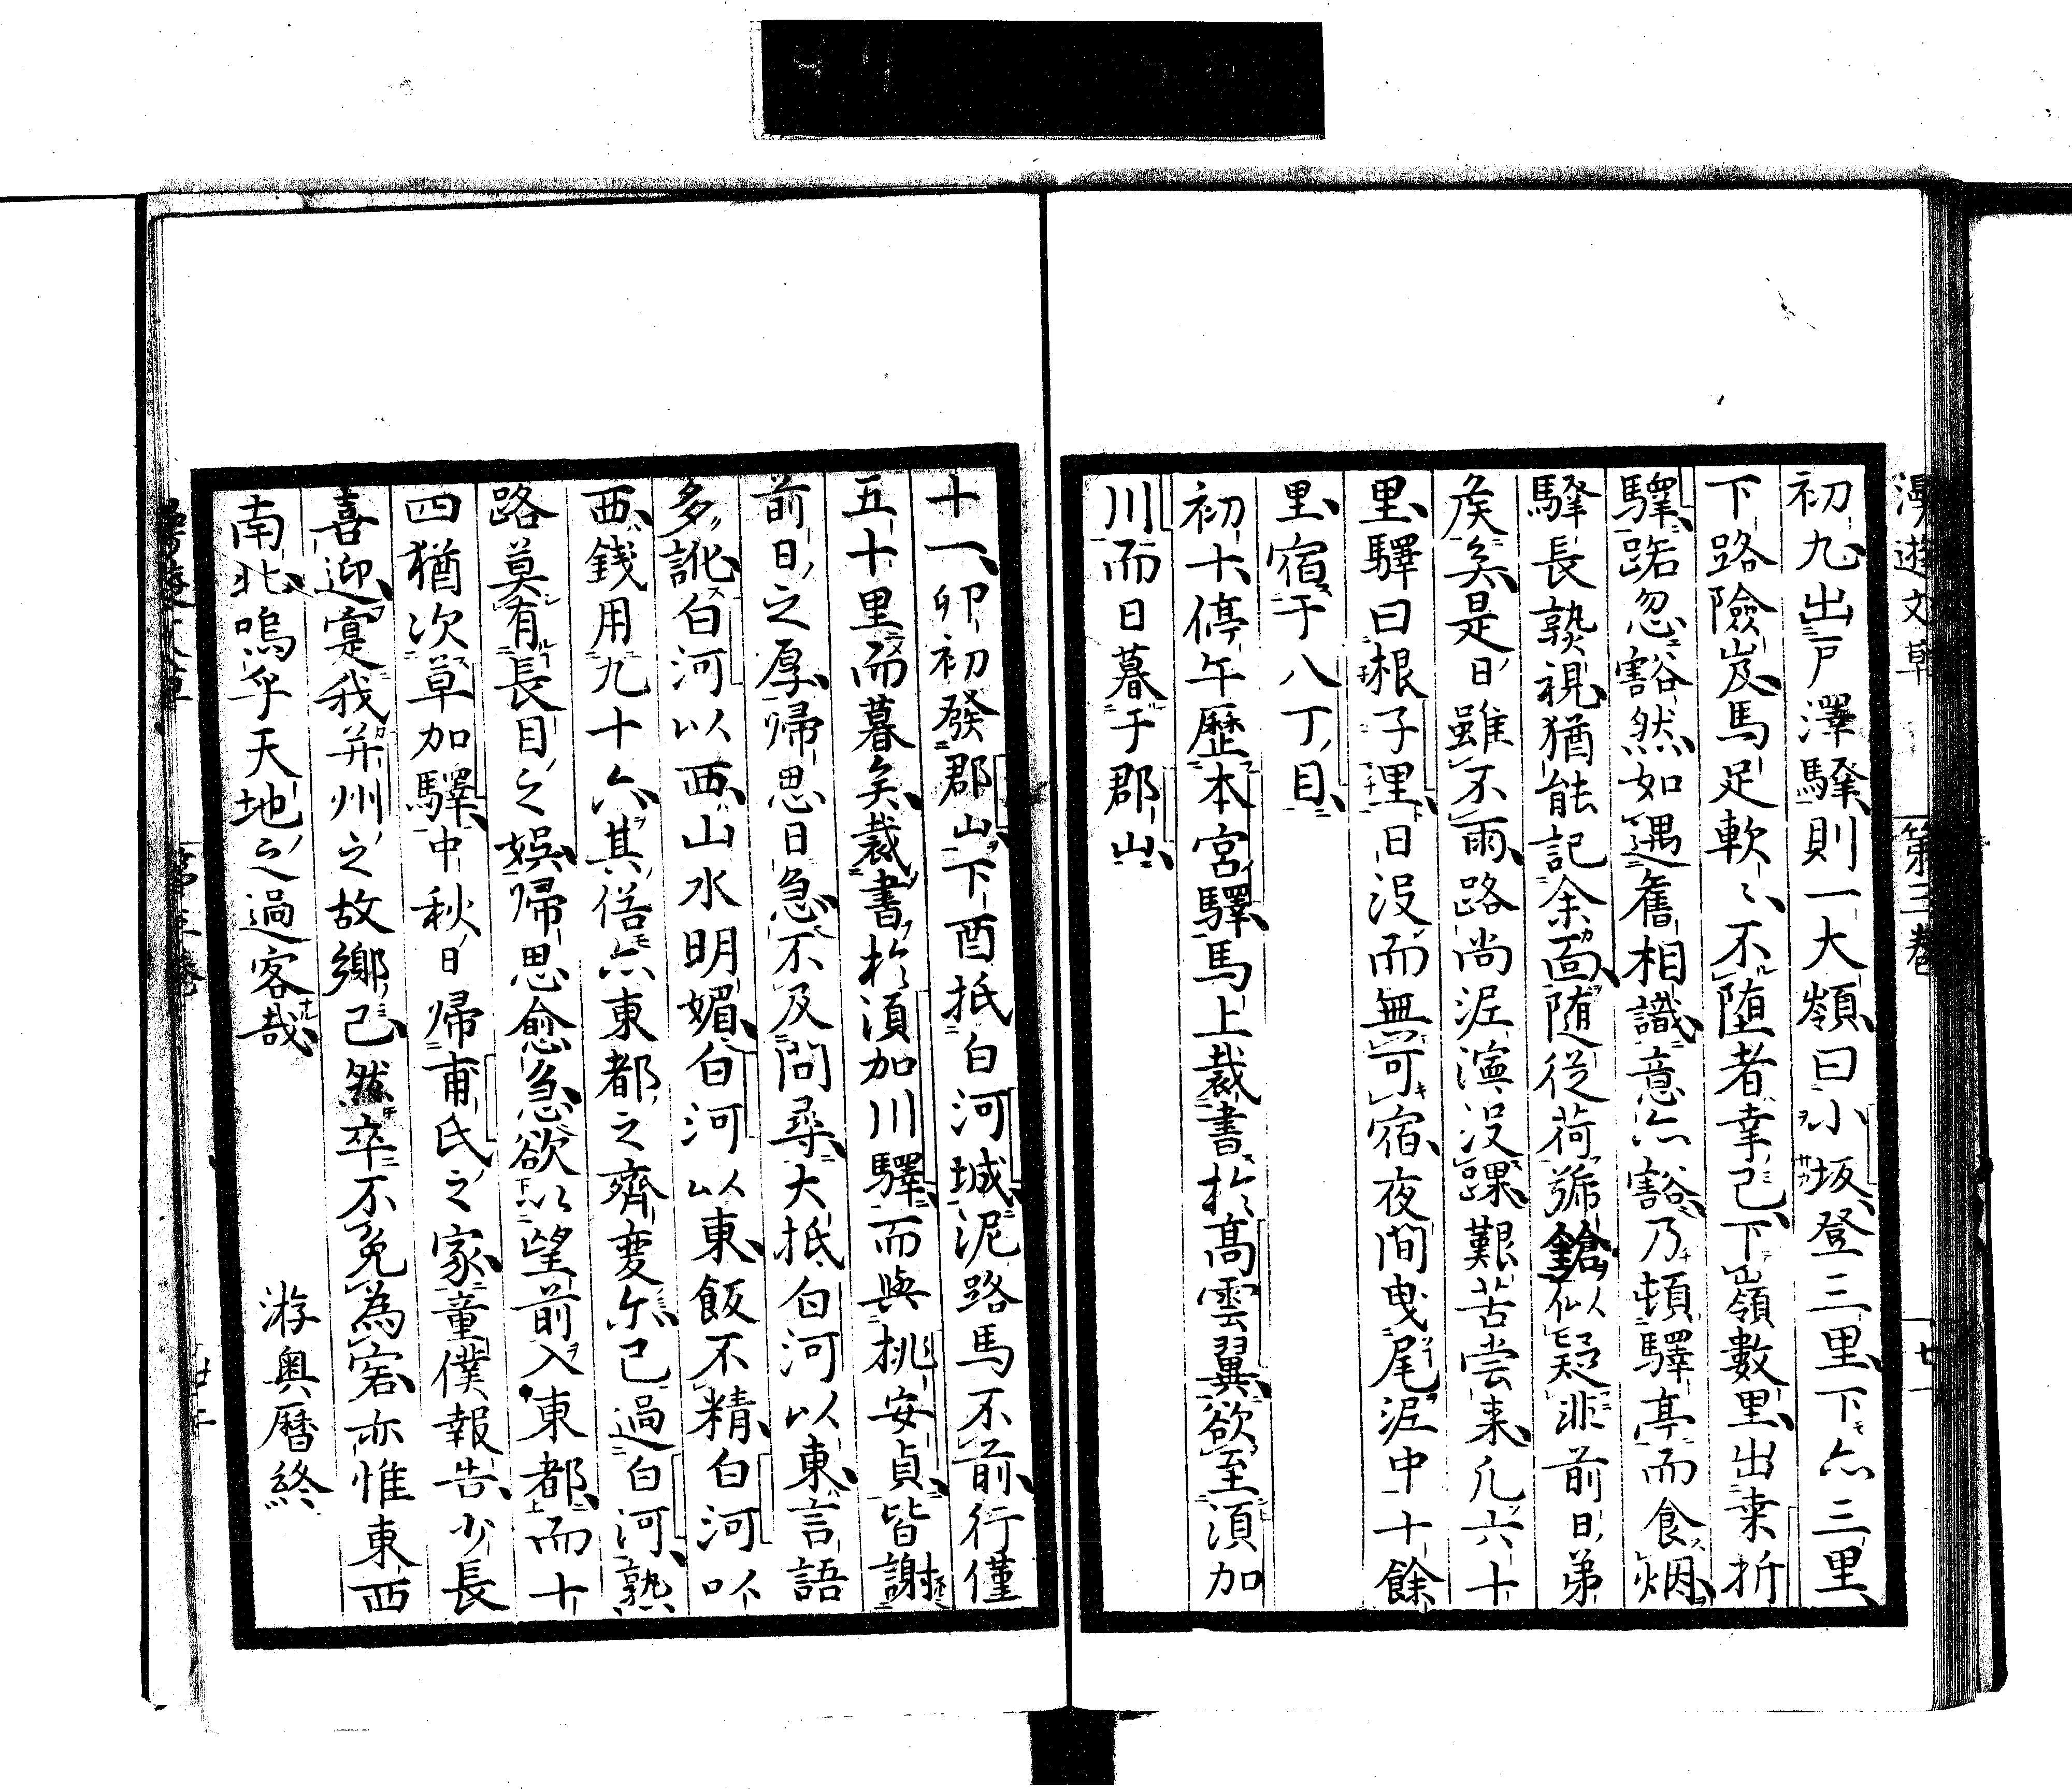 漫遊文草 第三巻 廿一
初九出戸澤驛則一大嶺曰小坂登三里下亦三里
下路險岌馬足軟〻不堕者幸已下嶺數里出楽折
驛踣忽豁然如遇舊相識意亦豁乃頓驛亭而食烟
驛長孰視猶能記余面随從荷號鎗似疑非前日弟
矦矣是日雖不雨路尚泥濘没踝艱苦尝来凡六十
里驛曰根子里日没而無可宿夜間曳尾泥中十餘
里宿于八丁目
初十停午歴本宮驛馬上裁書於髙雲翼欲至湏加
川而日暮于郡山
十一卯初發郡山下酉抵白河城泥路馬不前行僅
五十里而暮矣裁書於湏加川驛而與桃安貞皆謝
前日之厚帰思日急不及問尋大抵白河以東言語
多訛白河以西山水明媚白河以東飯不精白河以
西錢用九十六其俗亦東都之齊変尓已過白河孰
路莫有長目之娯帰思愈急欲以望前入東都而十
四猶次草加驛中秋日帰甫氏之家童僕報告少長
喜迎寔我并州之故郷已然卒不免為客亦惟東西
南北嗚乎天地之過客哉
游奥暦終